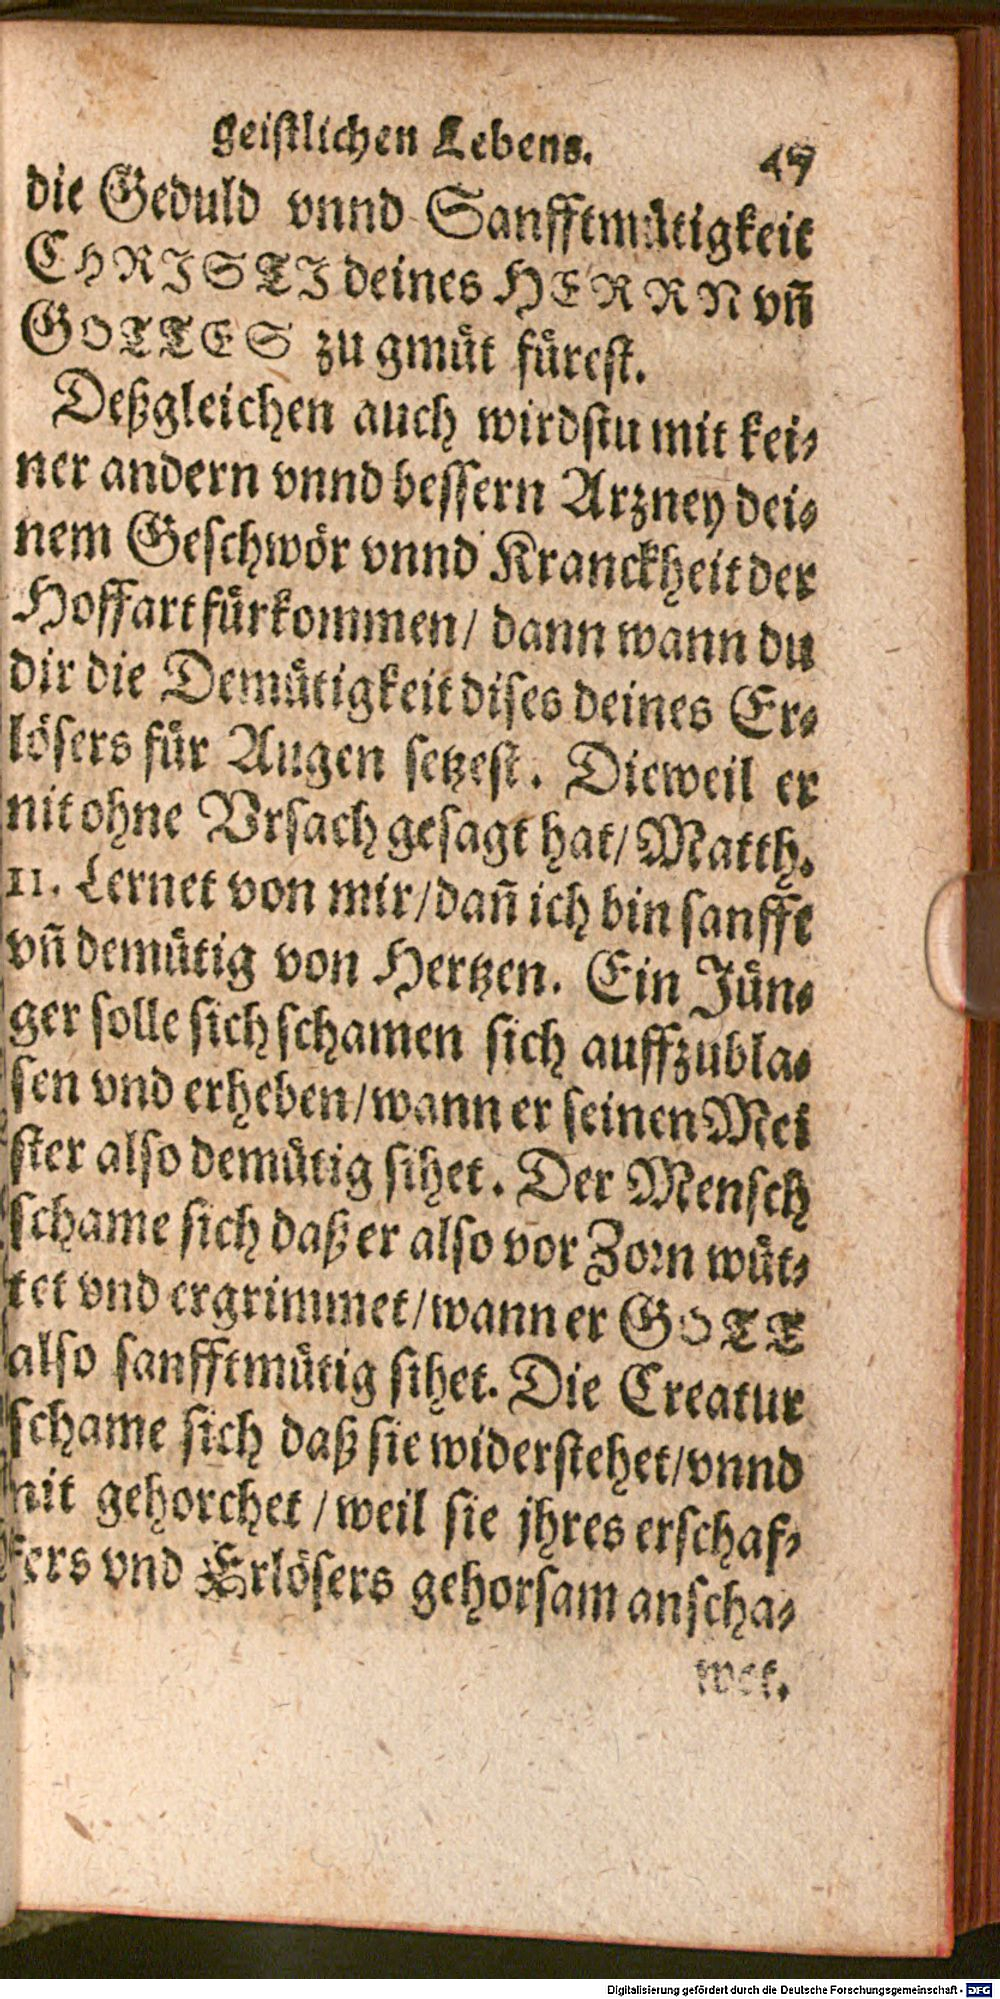 geistlichen Lebens. 49
die Geduld vnnd Sanfftmütigkeit
CHRISTI deines HERRN vñ
GOTTES zu gmüt fürest.
Deßgleichen auch wirdstu mit kei-
ner andern vnnd bessern Arzney dei-
nem Geschwör vnnd Kranckheit der
Hoffart fürkommen/ dann wann du
dir die Demütigkeit dises deines Er-
lösers für Augen setzest. Dieweil er
nit ohne Vrsach gesagt hat/ Matth.
11. Lernet von mir/dañ ich bin sanfft
vñ demütig von Hertzen. Ein Jün-
ger solle sich schamen sich auffzubla-
sen vnd erheben/wann er seinen Mei
ster also demütig sihet. Der Mensch
schame sich daß er also vor Zorn wüt-
tet vnd ergrimmet/wann er GOTT
also sanfftmütig sihet. Die Creatur
schame sich daß sie widerstehet/vnnd
nit gehorchet / weil sie jhres erschaf-
fers vnd Erlösers gehorsam anscha-
wet.
Digitalisierung gefördert durch die Deutsche Forschungsgemeinschaft - DFG